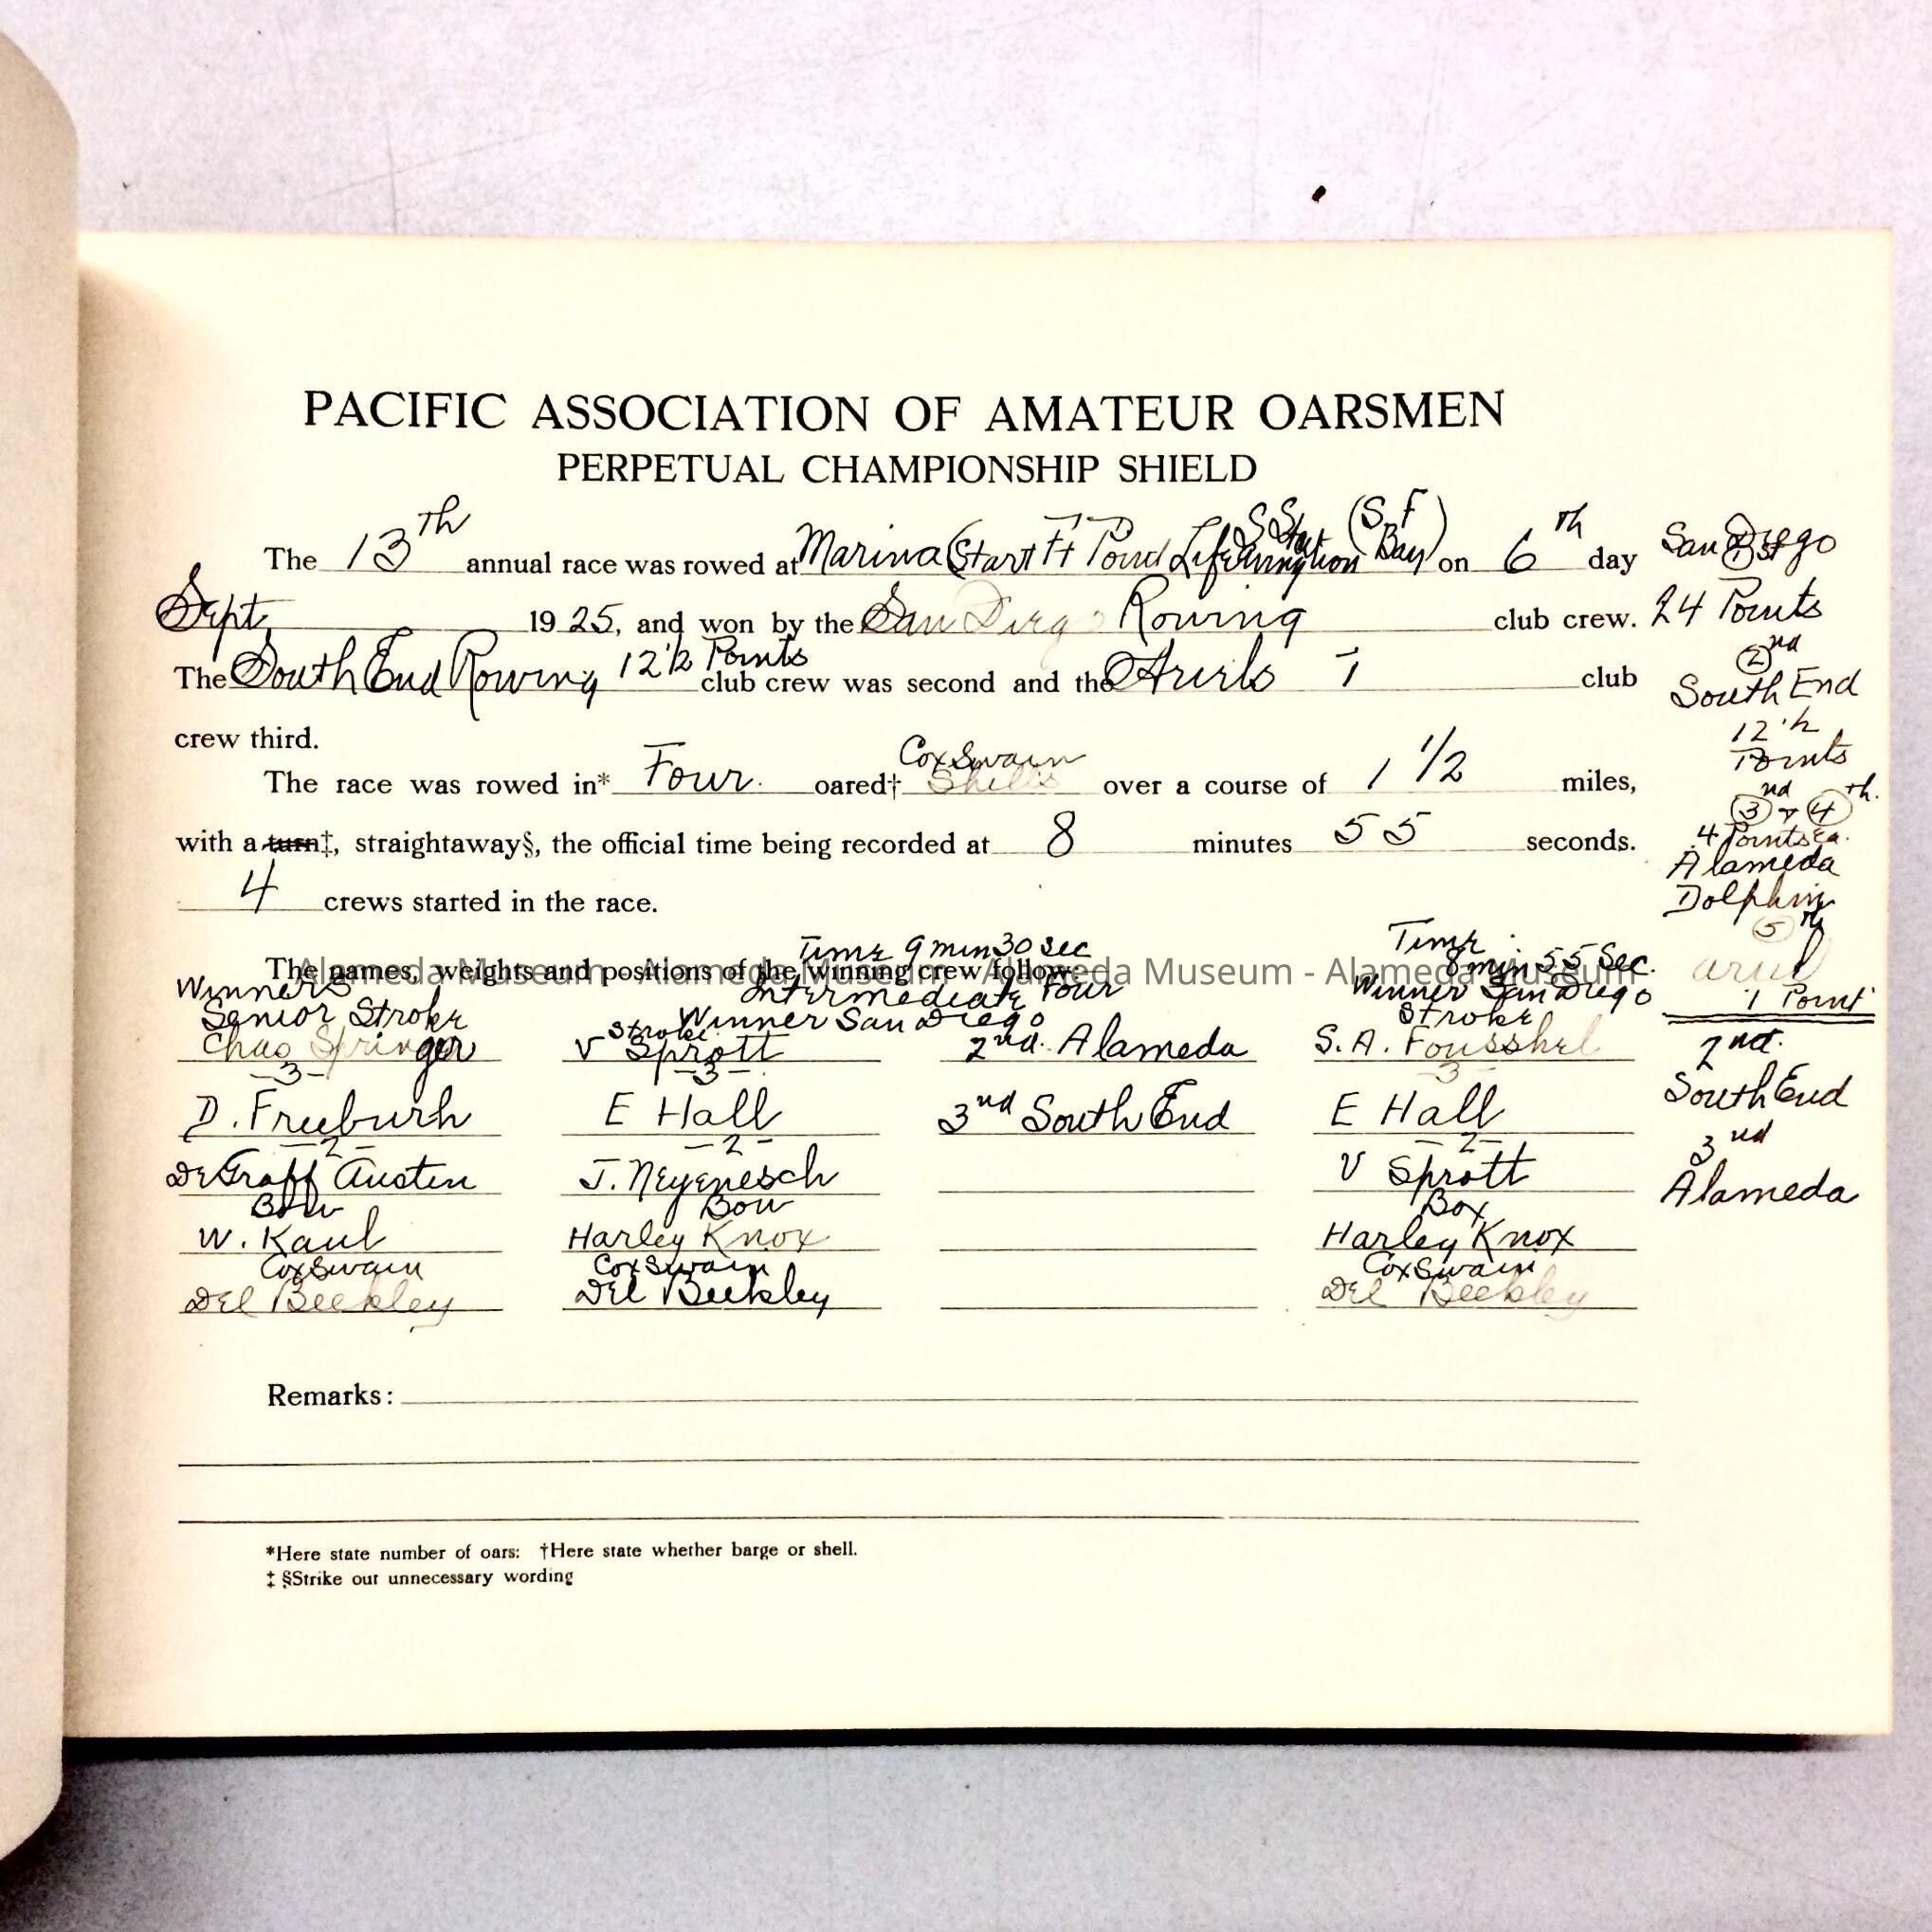 PACIFIC ASSOCIATION OF AMATEUR OARSMEN
PERPETUAL CHAMPIONSHIP SHIELD
The 13th annual race was rowed at Marina (Start Ft Point Life (S.F Bay) on 6th day
Sept, 1925, and won by the San Diego Rowing club crew.
The South End Rowing 12 1/2 Points club crew was second and the club
crew third.
The race was rowed in* Four oared† CoxSwain Shells over a course of 1 1/2 miles,
with a turn‡, straightaway§, the official time being recorded at 8 minutes 55 seconds.
4 crews started in the race.
The names, weights and positions of the winning crew follow:
Alameda Museum - Alameda Museum - Alameda Museum - Alameda Museum
Winners
Senior Stroke
Chas Springer
-3-
D. Freeburh
-2-
DeGraff Austen
Bow
W. Kaul
CoxSwain
Del Beekley
Time 9 min 30 sec
Intermediate Four
Winner San Diego
Stroke
V Sprott
-3-
E Hall
-2-
J. Neyenesch
Bow
Harley Knox
CoxSwain
Del Beekley
2nd. Alameda
3nd South End
Time
8 min 55 Sec.
Winner San Diego
Stroke
S. A. Fousshel
-3-
E Hall
-2-
V Sprott
Box
Harley Knox
CoxSwain
Del Beekley
San Diego
1st
24 Points
2nd
South End
12 1/2
Points
3nd & 4th.
4 Points ea.
Alameda
Dolphin
5th
ariel
1 Point
2nd.
South End
3nd
Alameda
Remarks:
*Here state number of oars: †Here state whether barge or shell.
‡ §Strike out unnecessary wording